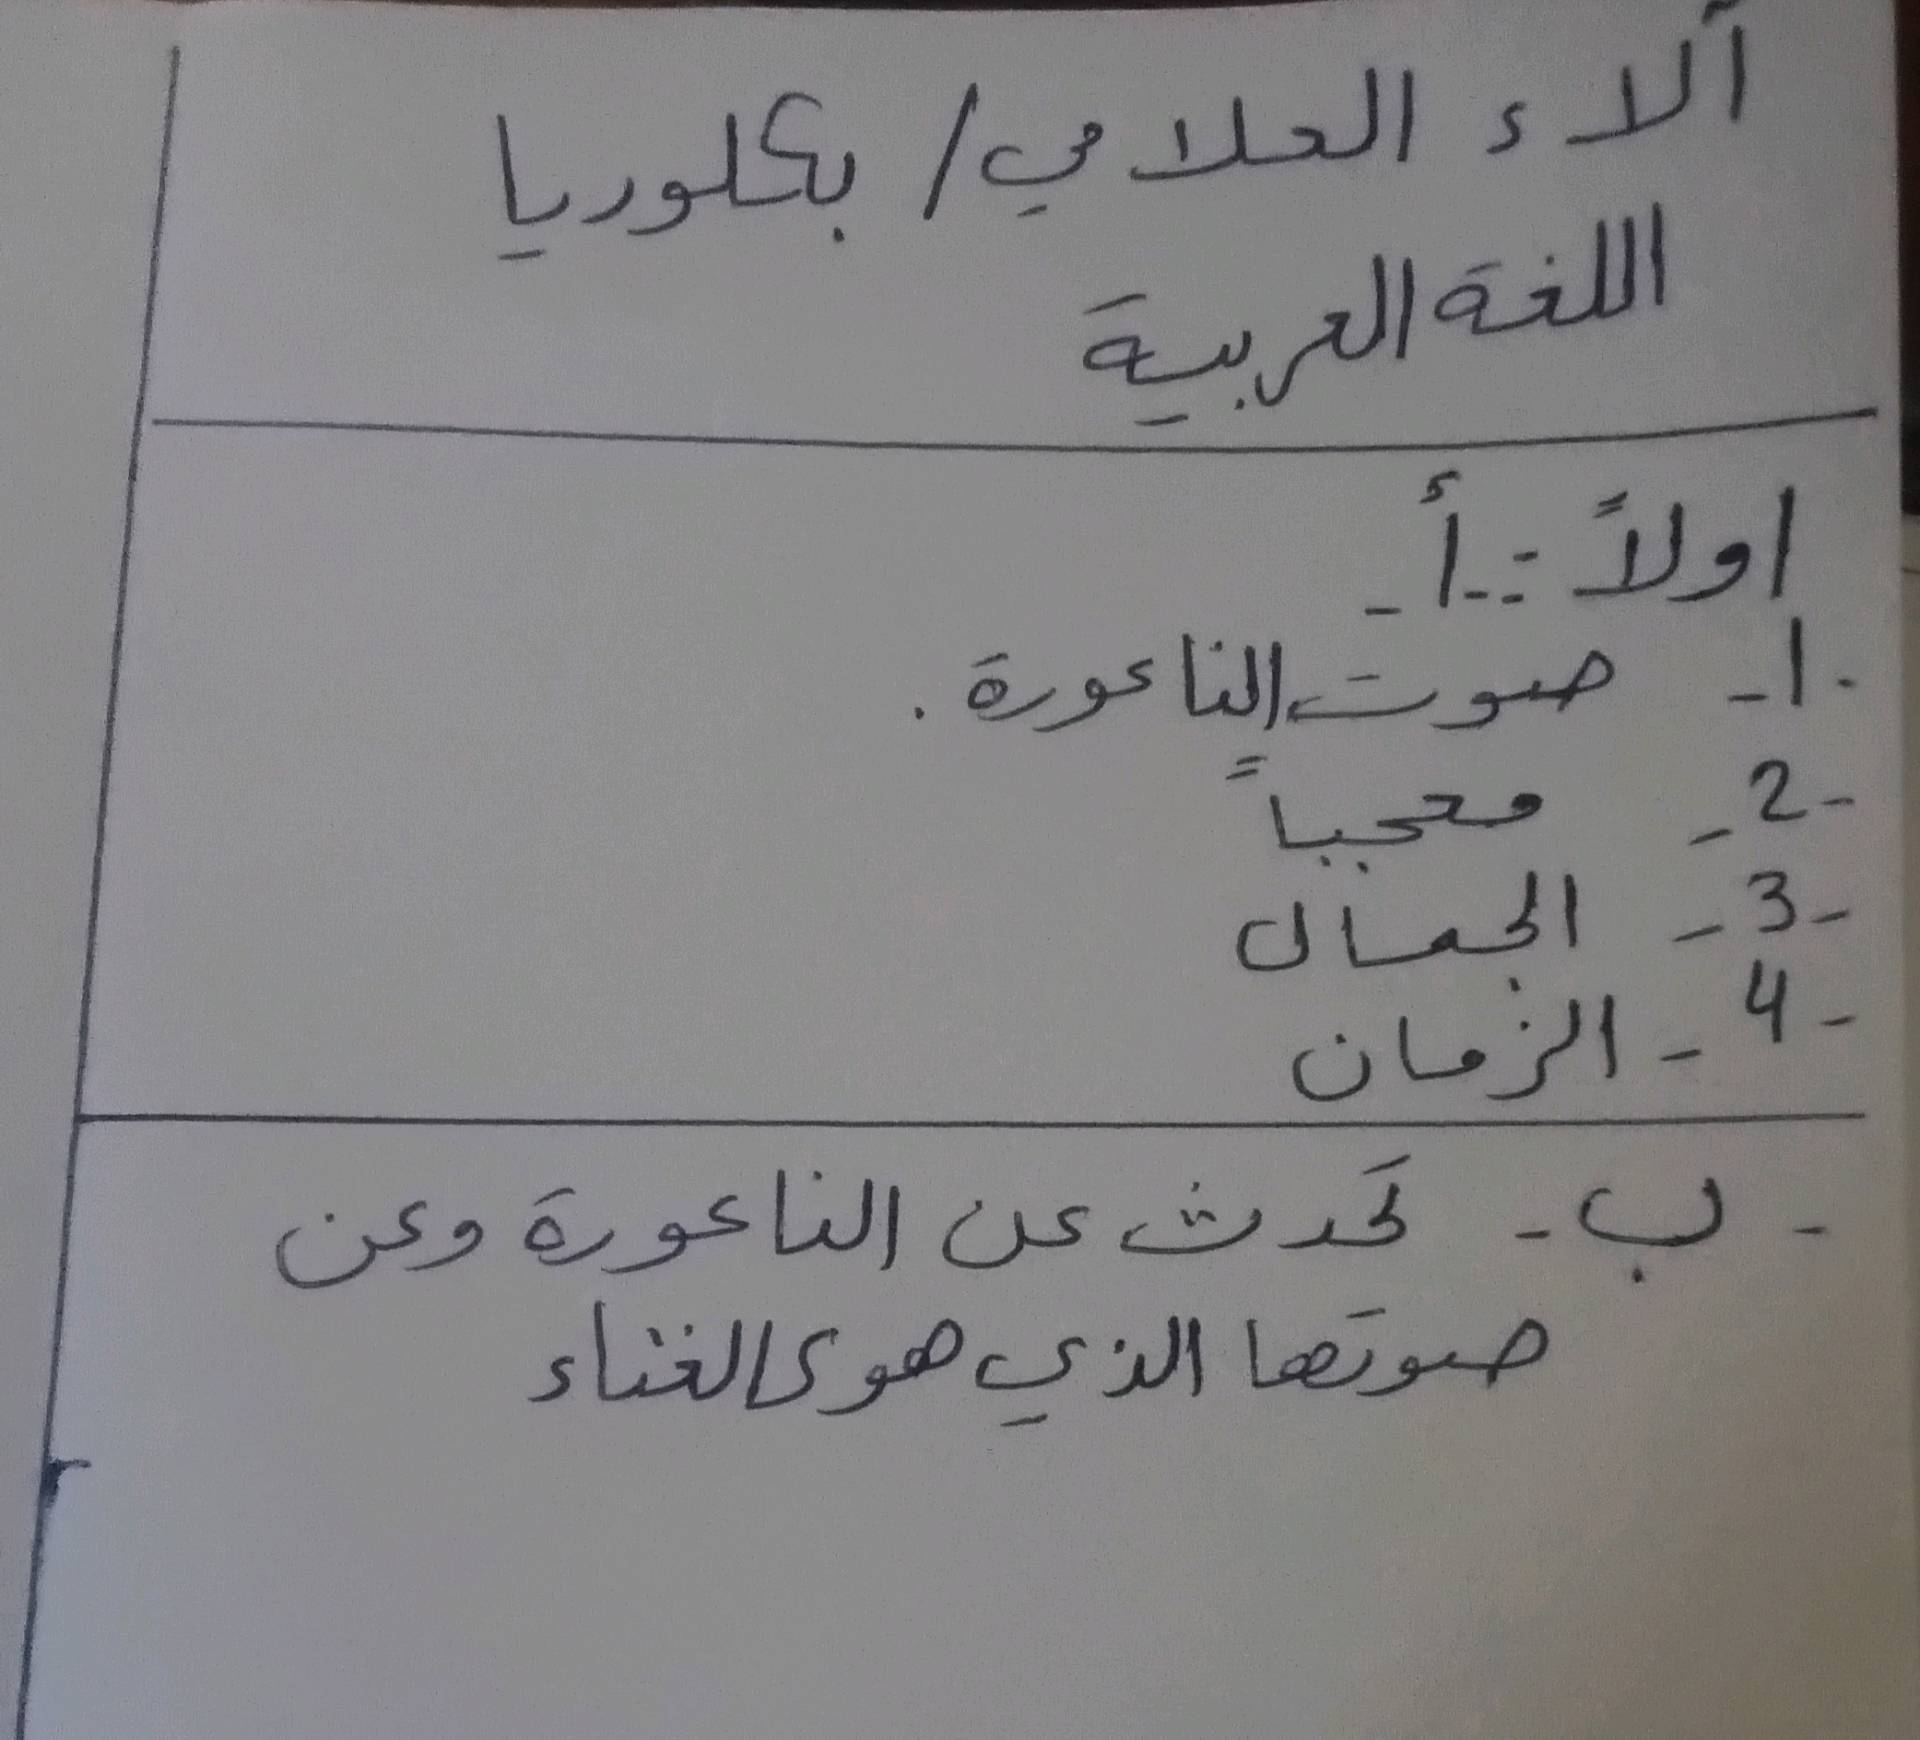 آلاء العلامي / بكلوريا
اللغة العربية
اولاً :- أ -
1- صوت الناعورة .
2- معجباً
3- الجمال
4- الزمان
- ب - تحدث عن الناعورة وعن
صوتها الذي هوى الغناء